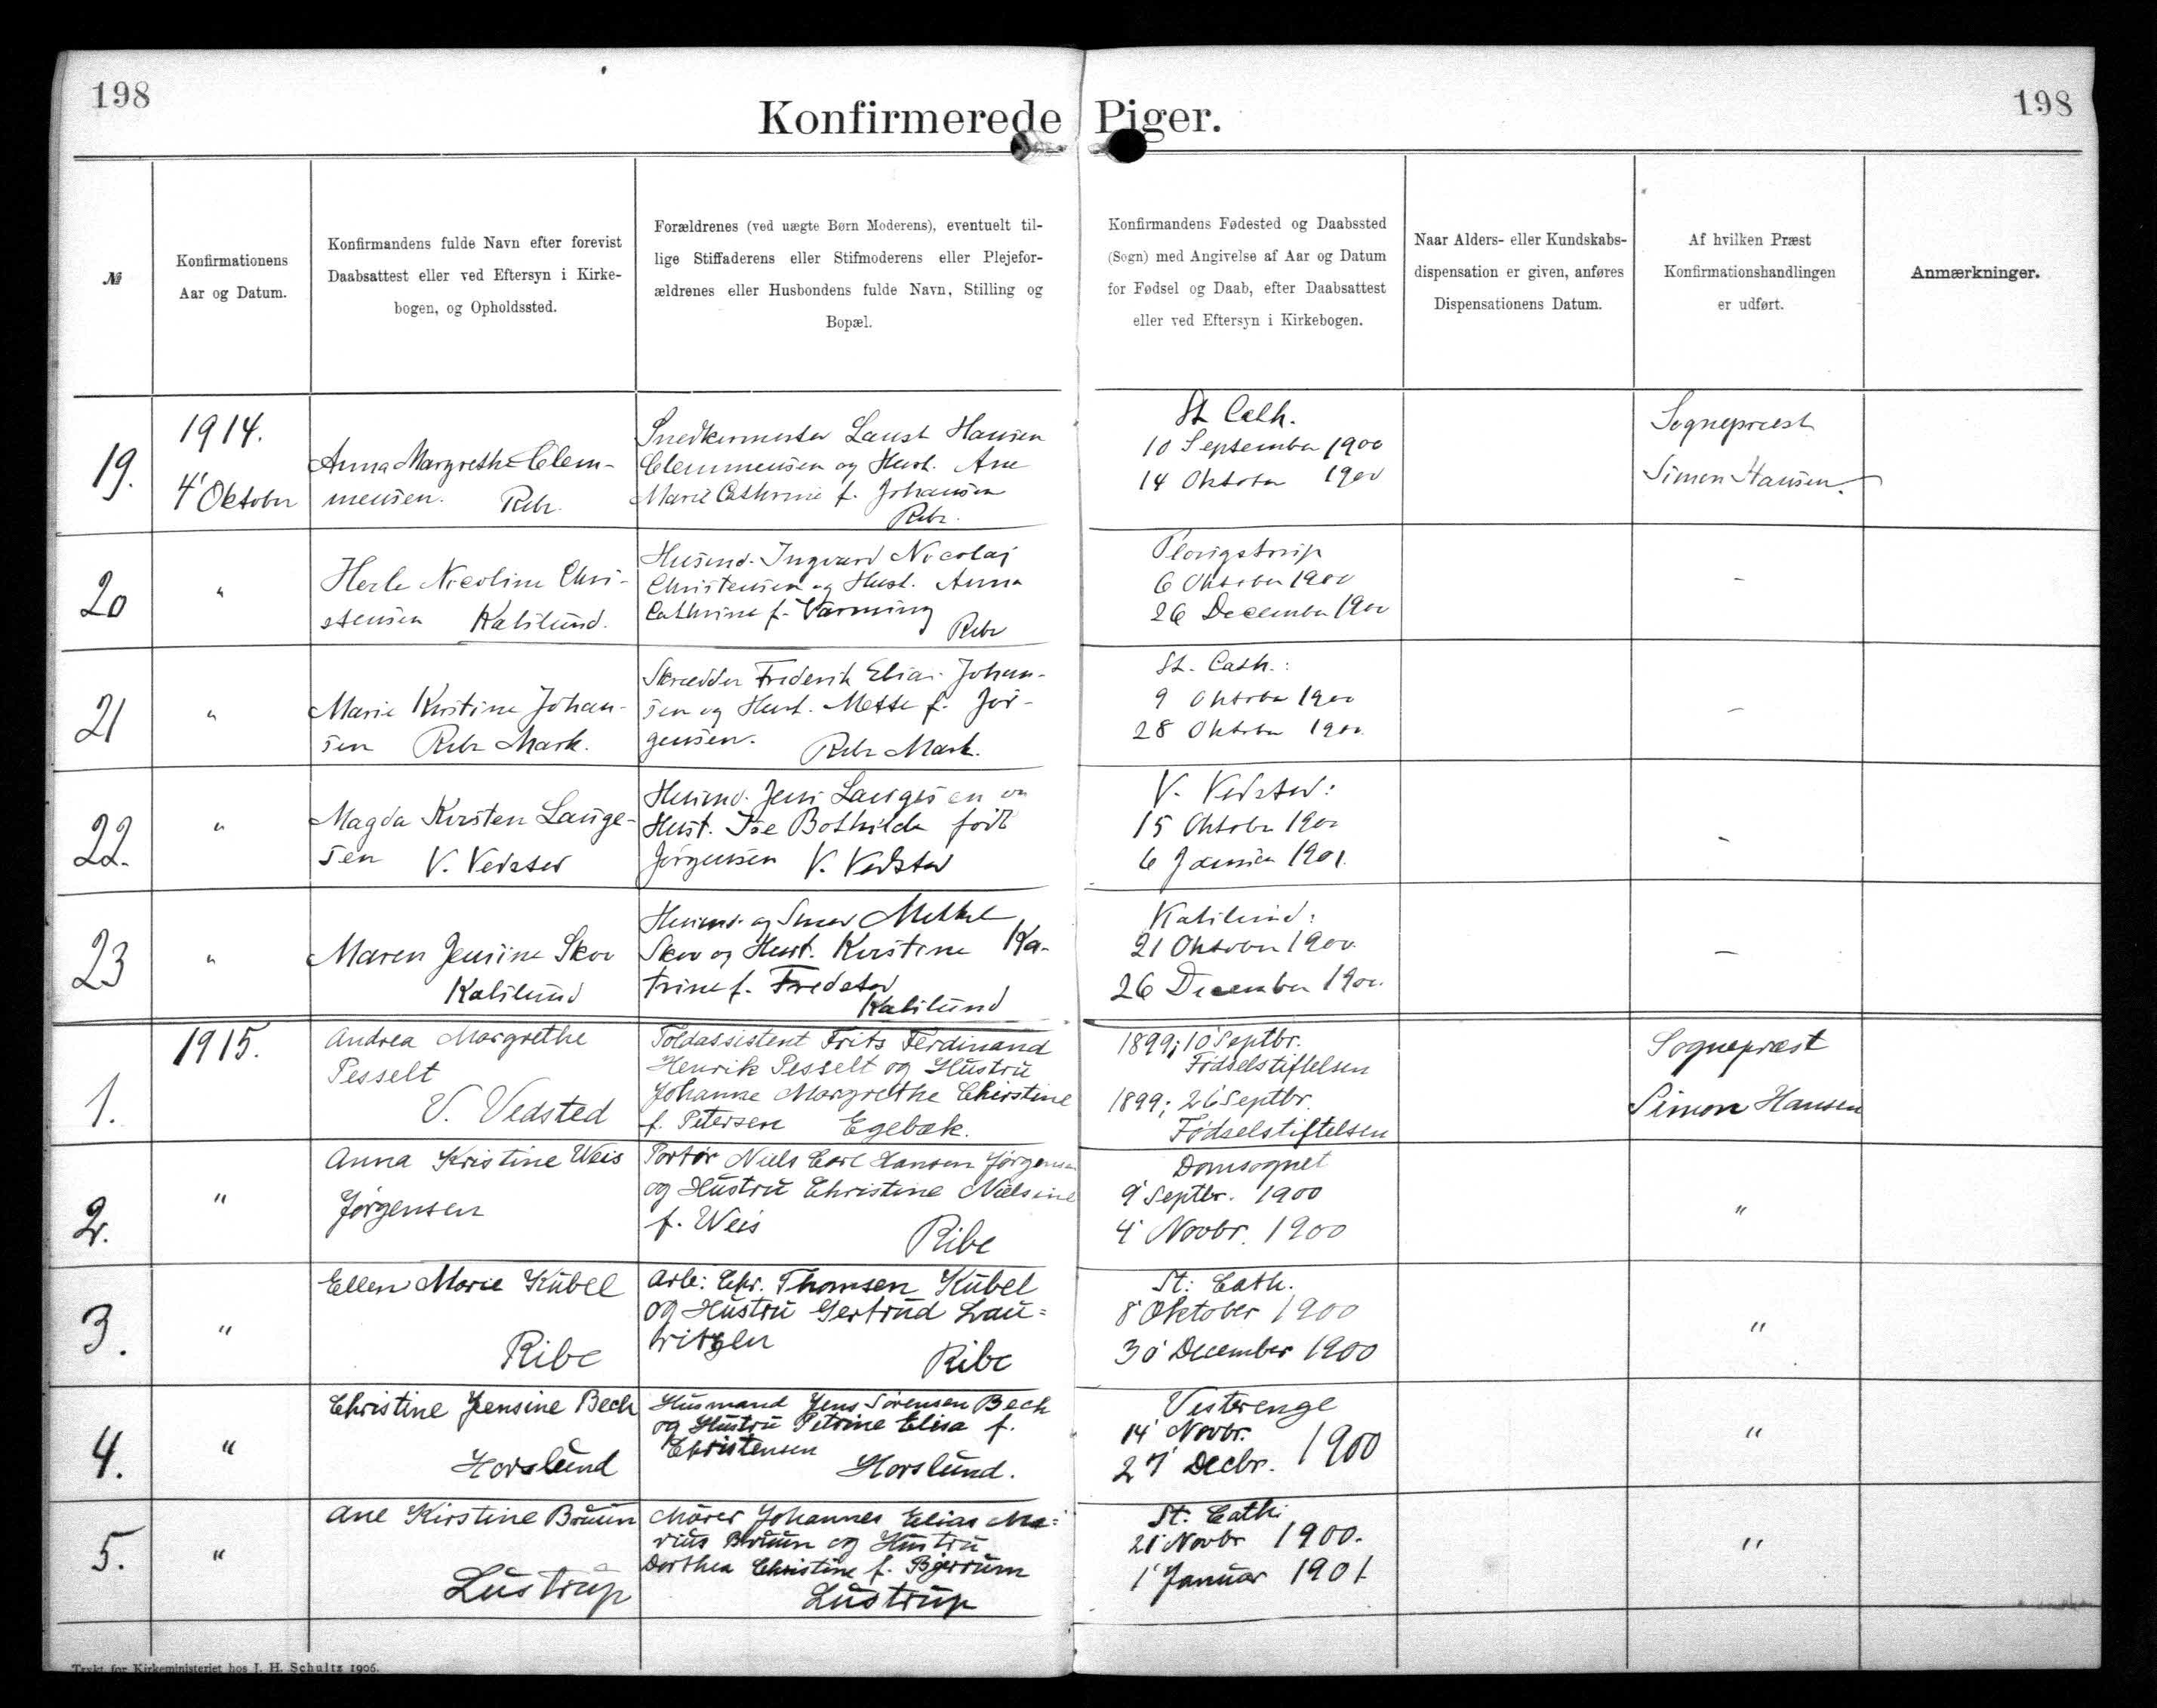 198
198
Konfirmerede Piger.
№
Konfirmationens
Aar og Datum.
Konfirmandens fulde Navn efter forevist
Daabsattest eller ved Eftersyn i Kirke-
bogen, og Opholdssted.
Forældrenes (ved uægte Børn Moderens), eventuelt til-
lige Stiffaderens eller Stifmoderens eller Plejefor-
ældrenes eller Husbondens fulde Navn, Stilling og
Bopæl.
Konfirmandens Fødested og Daabssted
(Sogn) med Angivelse af Aar og Datum
for Fødsel og Daab, efter Daabsattest
eller ved Eftersyn i Kirkebogen.
Naar Alders- eller Kundskabs-
dispensation er given, anføres
Dispensationens Datum.
Af hvilken Præst
Konfirmationshandlingen
er udført.
Anmærkninger.
19.
1914.
4' Oktober
Anna Margrethe Clem-
mensen. Ribe.
Snedkermester Laust Hansen
Clemmensen og Hust. Ane
Marie Cathrine f. Johansen
Ribe.
St Cath.
10 September 1900
14 Oktober 1900
Sognepræst
Simon Hansen.
20
"
Nicoline Chri-
stensen Kalslund.
Husmd. Ingvard Nicolaj
Christensen og Hust. Anna
Cathrine f. Varming
Ribe
6 Oktober 1900
26 December 1900
–
21
"
Marie Kirstine Johan-
sen Ribe Mark.
Skrædder Frederik Elias Johan-
sen og Hust. Mette f. Jør-
gensen. Ribe Mark.
St. Cath.:
9 Oktober 1900
28 Oktober 1900.
–
22.
"
Magda Kirsten Lauge-
sen V. Vedsted
Husmd. Jens Laugesen og
Hust. Bothilde født
Jørgensen V. Vedsted
V. Vedsted:
15 Oktober 1900
6 Januar 1901.
–
23
"
Maren Jensine Skov
Kalslund
Husmd. og Smed Mikkel
Skov og Hust. Kirstine Ka-
trine f. Fredsted
Kalslund
Kalslund:
21 Oktober 1900.
26 December 1900.
–
1.
1915.
Andrea Margrethe
Pesselt
V. Vedsted
Toldassistent Frits Ferdinand
Henrik Pesselt og Hustru
Johanne Margrethe Christine
f. Petersen Egebæk.
1899; 10' Septbr.
Fødselstiftelsen
1899; 26' Septbr.
Fødselstiftelsen
Sognepræst
Simon Hansen
2.
"
Anna Kristine Weis
Jørgensen
Portør Niels Carl Hansen Jørgensen
og Hustru Christine Nielsine
f. Weis
Ribe
Domsognet
9' Septbr. 1900
4' Novbr. 1900
"
3.
"
Ellen Marie Kübel
Ribe
Arb: Chr. Thomsen Kübel
og Hustru Gertrud Lau=
ritzen
Ribe
St: Cath.
8' Oktober 1900
30' December 1900
"
4.
"
Christine Jensine Bech
Horslund
Husmand Jens Sørensen Bech
og Hustru Petrine Elisa f.
Christensen
Horslund.
Vesterenge
14' Novbr.
27' Decbr. 1900
"
5.
"
Ane Kirstine Bruun
Lustrup
Murer Johannes Elias Ma=
rius Bruun og Hustru
Dorthea Christine f. Bjerrum
Lustrup
St: Cath:
21' Novbr 1900.
1' Januar 1901.
"
Trykt for Kirkeministeriet hos J. H. Schultz 1906.